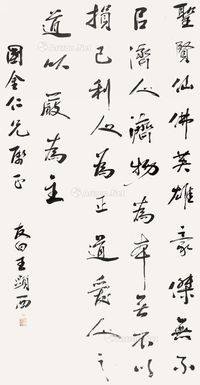 聖賢仙佛英雄豪傑無不
以濟人濟物為本無不以
損己利人為正道愛人之
道以嚴為主
國金仁兄啟正
友白王顯西